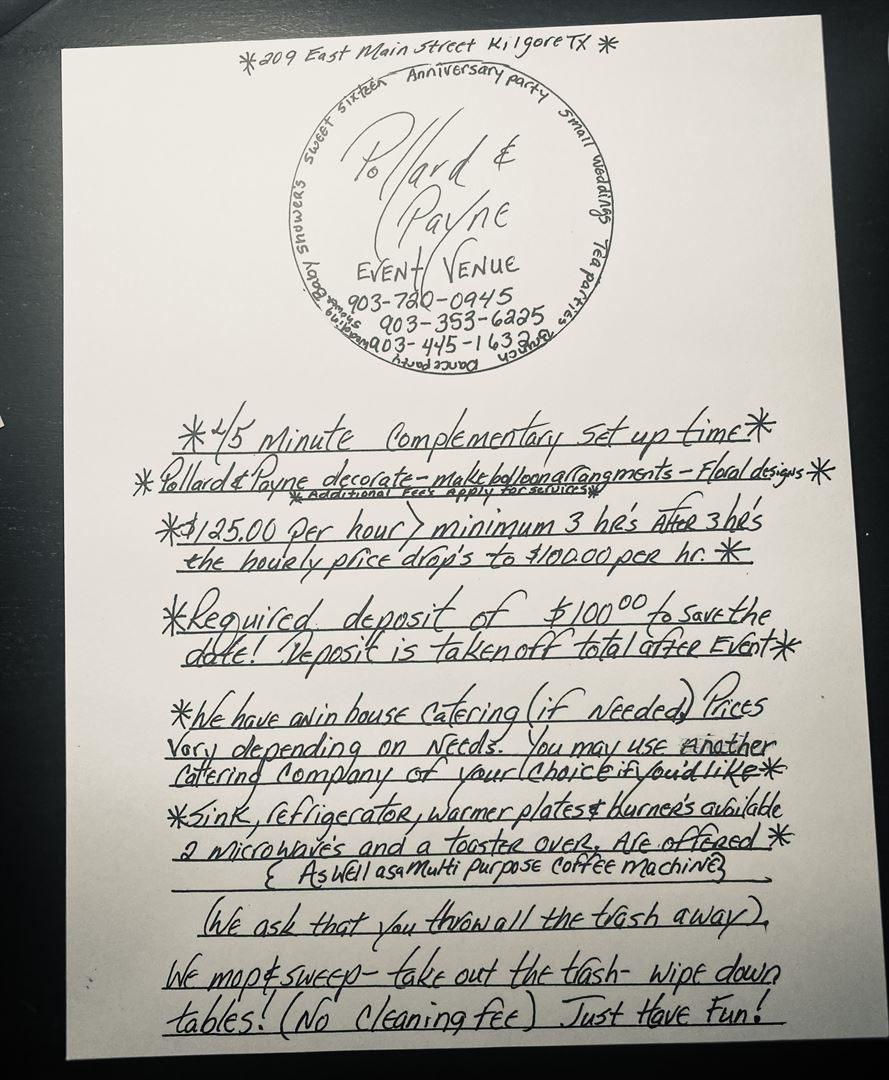 *209 East Main Street Kilgore TX *
Baby Shower's Sweet Sixteen Anniversary party Small Weddings Tea parties Brunch Dance party Wedding Shower
Pollard &
Payne
Event Venue
903-720-0945
903-353-6225
903-445-1632
*45 Minute Complementary Set up time*
* Pollard & Payne decorate - make balloon arrangments - Floral designs *
* Additional Fees Apply for services *
*$125.00 Per hour) minimum 3 hr's After 3 hr's
the hourly price drop's to $100.00 per hr. *
*Required deposit of $100.00 to save the
date! Deposit is taken off total after Event*
*We have an in house Catering (if Needed) Prices
Vary depending on Needs. You may use Another
Catering Company of your Choice if you'd like*
*Sink, refrigerator, warmer plates & burner's available
2 Microwave's and a toaster over. Are offered *
{ As Well as a Multi Purpose Coffee machine}
(We ask that you throw all the trash away).
We mop & sweep - take out the trash - wipe down
tables! (No Cleaning fee) Just Have Fun!